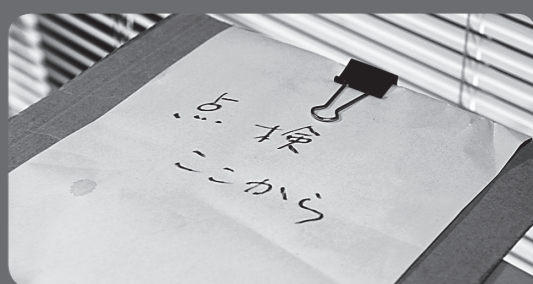 点検
ここから